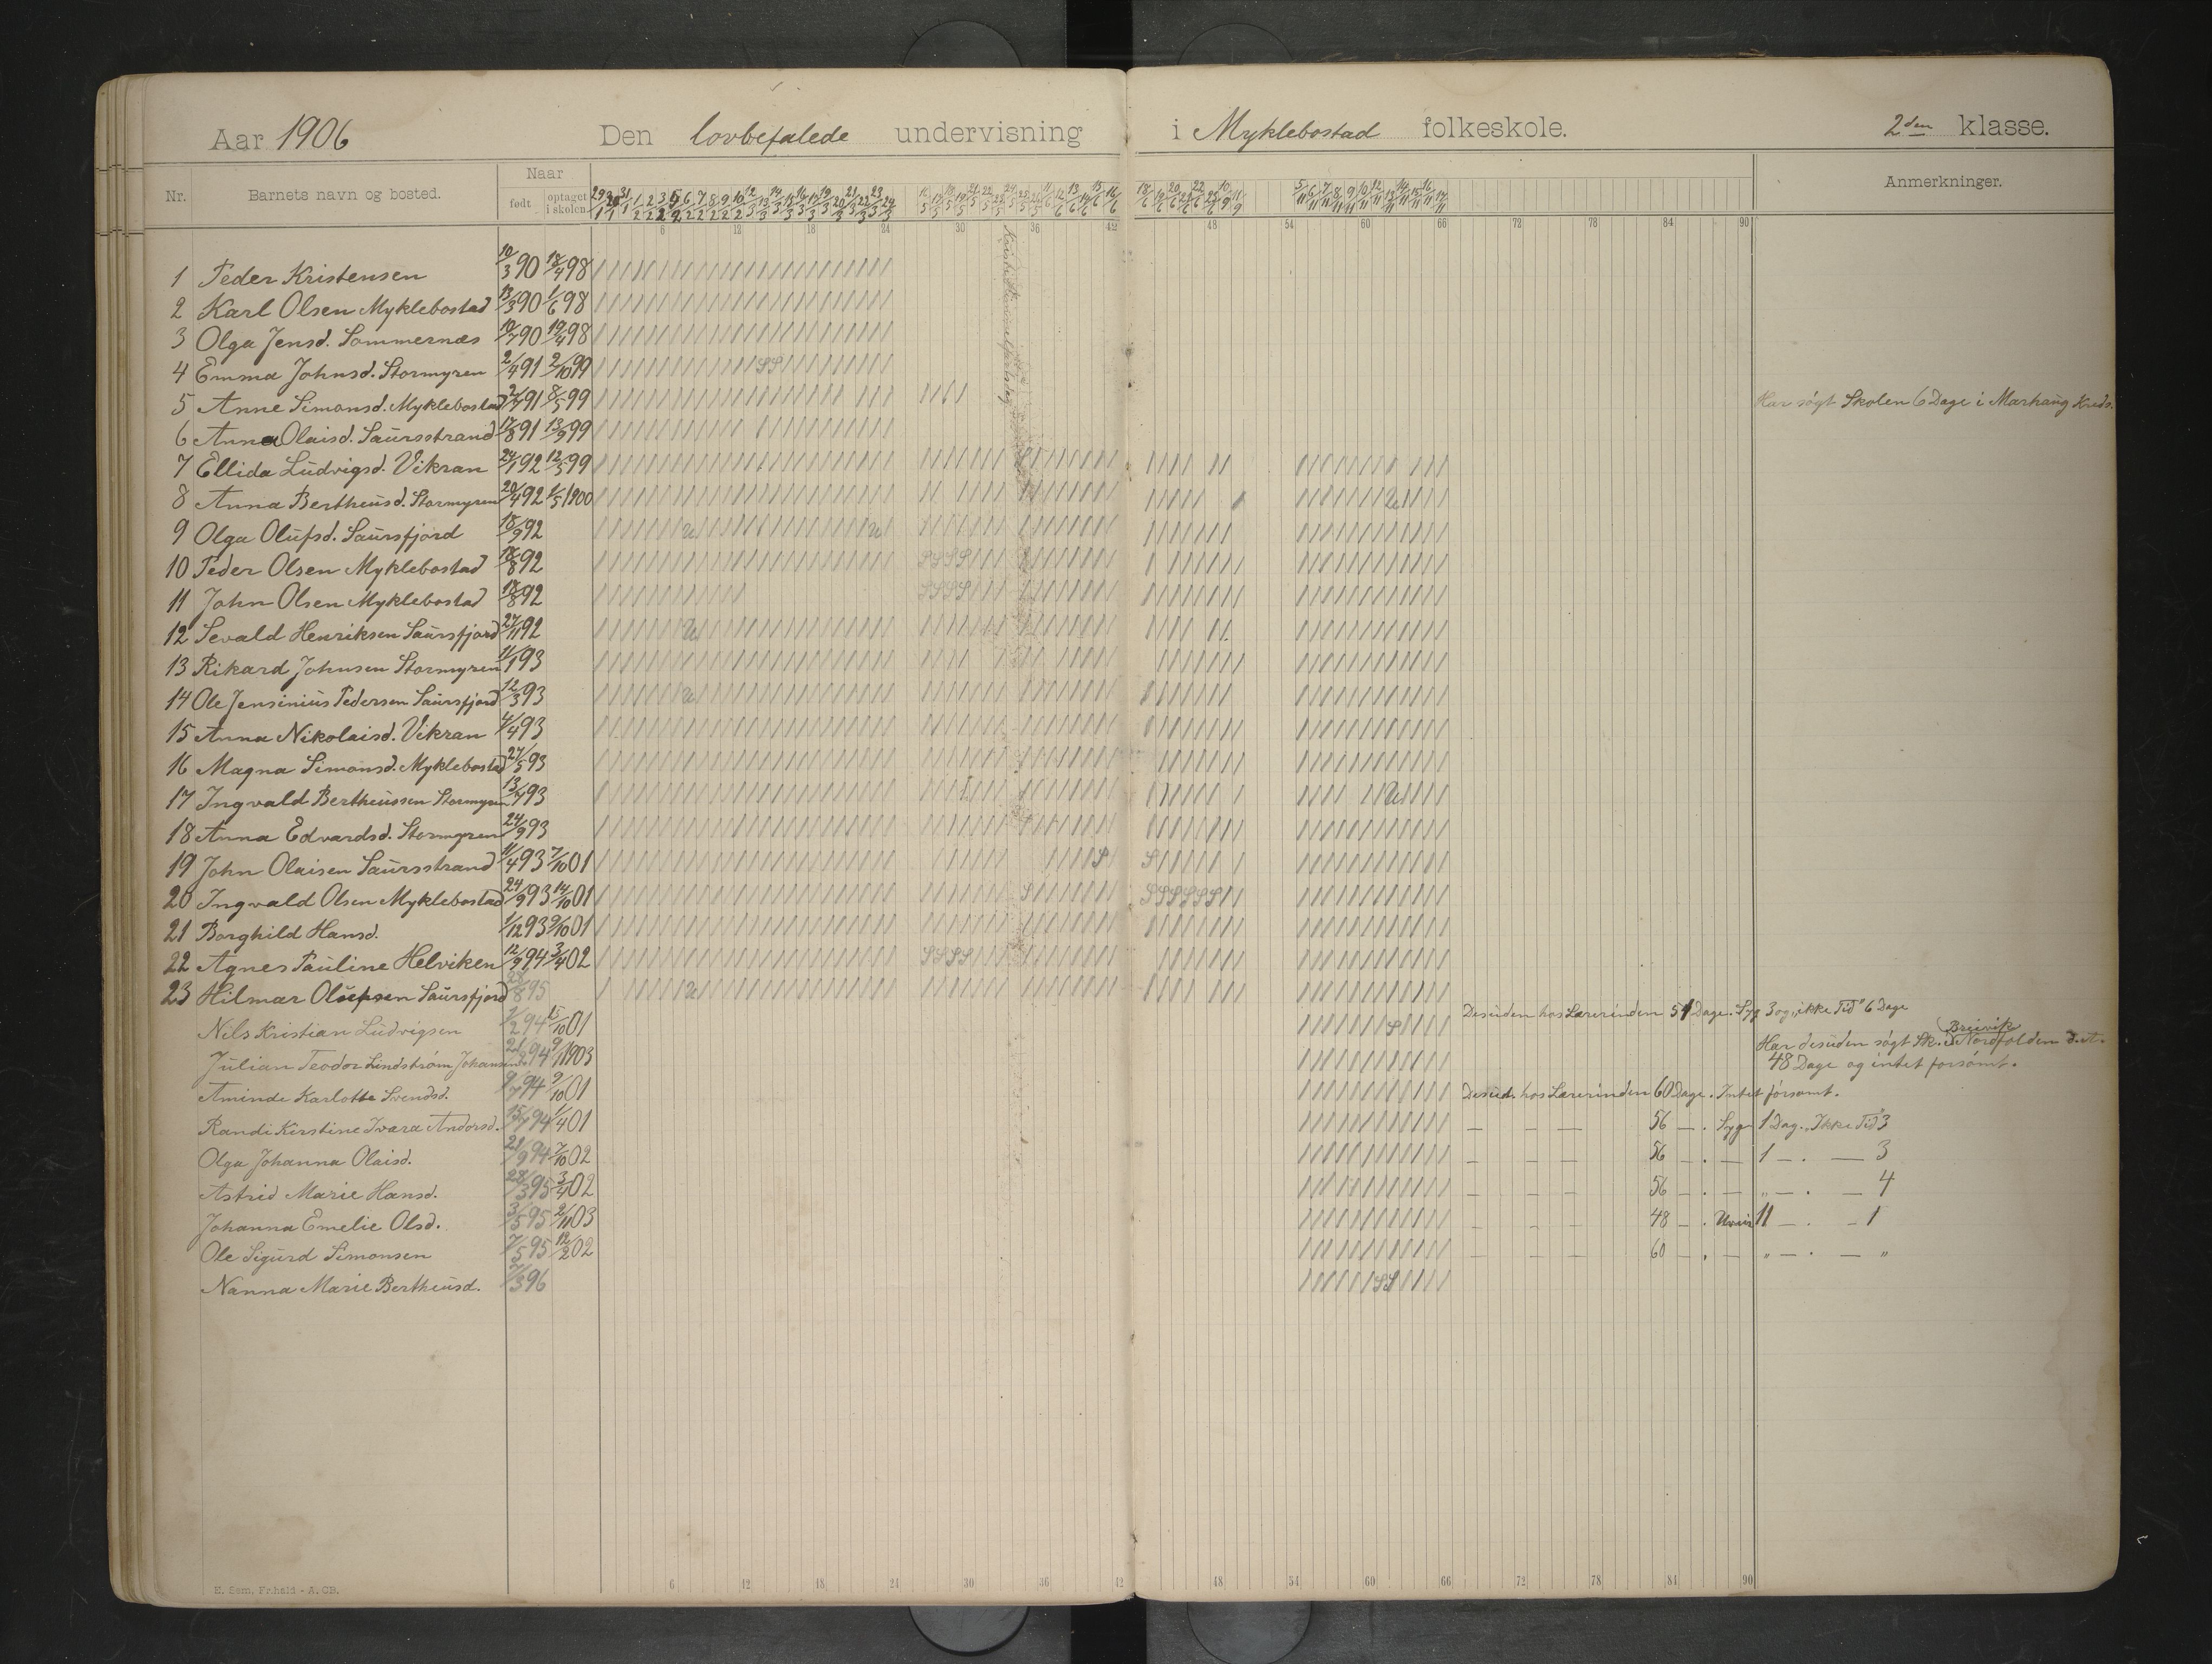 Aar 1906 Den lovbefalede undervisning i Myklebostad folkeskole. 2den klasse.
Nr. Barnets navn og bosted. Naar Anmerkninger.
født optaget i skolen
6 12 18 24 30 36 42 48 54 60 66 72 78 84 90
1 Peder Kristensen 10/3 90 18/4 98
2 Karl Olsen Myklebostad 13/3 90 1/6 98
3 Olga Jensd. Sommernæs 10/7 90 19/4 98
4 Emma Johnsd. Stormyren 2/4 91 2/10 99
5 Anne Simonsd. Myklebostad 2/7 91 8/5 99 Har søgt Skolen 6 Dage i Marhaug Kreds.
6 Anna Olaisd. Saursstrand 17/8 91 13/9 99
7 Ellida Ludvigsd. Vikran 24/1 92 12/5 99
8 Anna Bertheusd. Stormyren 20/4 92 1/5 1900
9 Olga Olufsd. Saursfjord 18/9 92
10 Peder Olsen Myklebostad 18/8 92
11 John Olsen Myklebostad 18/8 92
12 Sevald Henriksen Saursfjord 27/11 92
13 Rikard Johnsen Stormyren 11/1 93
14 Ole Jensinius Pedersen Saursfjord 12/3 93
15 Anna Nikolaisd. Vikran 4/4 93
16 Magna Simonsd. Myklebostad 27/5 93
17 Ingvald Bertheussen Stormyren 13/7 93
18 Anna Edvardsd. Stormyren 24/9 93
19 John Olaisen Saursstrand 11/4 93 7/10 01
20 Ingvald Olsen Myklebostad 24/9 93 14/10 01
21 Borghild Hansd. 1/12 93 9/10 01
22 Agnes Pauline Helviken 12/9 94 3/4 02
23 Hilmar Olsen Saursfjord 95
Nils Kristian Ludvigsen 1/2 94 15/10 01 Desuden hos Lærerinden 51 Dage. Syg 3 og "ikke Tid" 6 Dage
Julian Teodor Lindstrøm Johansen 94 9/11 1903 Har desuden søgt Sk. i Breivik Nordfolden d. A.
48 Dage og intet forsømt.
Aminde Karlotte Svendsd. 9/7 94 9/10 01 Desud. hos Lærerinden 60 Dage. Intet forsømt.
Randi Kirstine Ivara Andorsd. 15/7 94 1/4 01 — — — 56 — . Syg 1 Dag. "Ikke Tid" 3
Olga Johanna Olaisd. 21/9 94 7/10 02 — — — 56 — . — 1 — . — 3
Astrid Marie Hansd. 28/3 95 3/4 02 — — — 56 — . — „ — . — 4
Johanna Emelie Olsd. 3/5 95 2/11 03 — — — 48 — . Uveir 11 — . — 1
Ole Sigurd Simonsen 7/5 95 12/2 02 — — — 60 — . — „ — . — „
Nanna Marie Bertheusd. 7/3 96
6 12 18 24 30 36 42 48 54 60 66 72 78 84 90